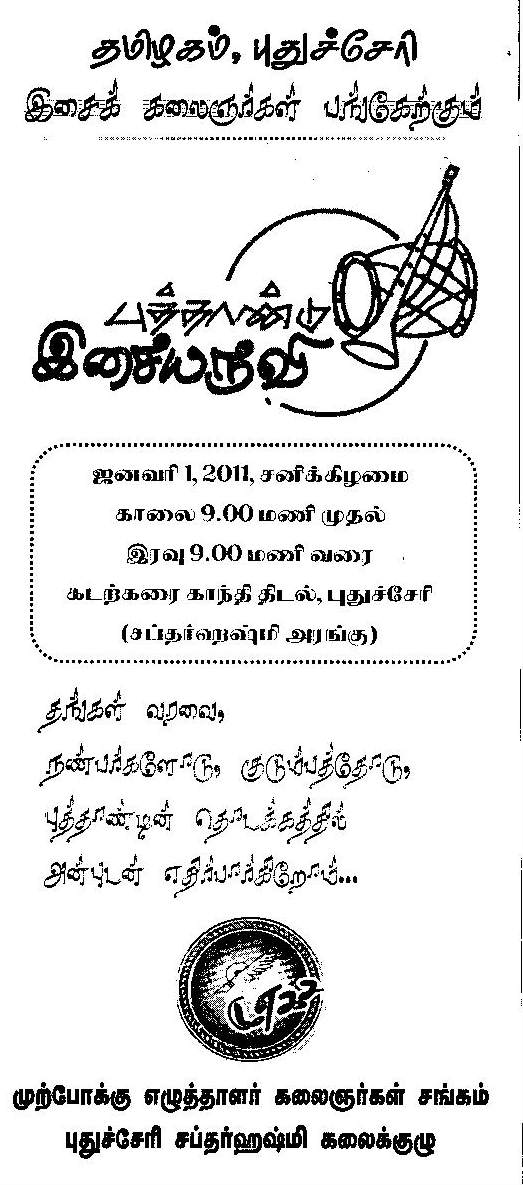 தமிழகம், புதுச்சேரி
இசைக் கலைஞர்கள் பங்கேற்கும்
புத்தாண்டு
இசையருவி
ஜனவரி 1, 2011, சனிக்கிழமை
காலை 9.00 மணி முதல்
இரவு 9.00 மணி வரை
கடற்கரை காந்தி திடல், புதுச்சேரி
(சப்தர்ஹஷ்மி அரங்கு)
தங்கள் வரவை,
நண்பர்களோடு, குடும்பத்தோடு,
புத்தாண்டின் தொடக்கத்தில்
அன்புடன் எதிர்பார்க்கிறோம்...
முற்போக்கு எழுத்தாளர் கலைஞர்கள் சங்கம்
புதுச்சேரி சப்தர்ஹஷ்மி கலைக்குழு